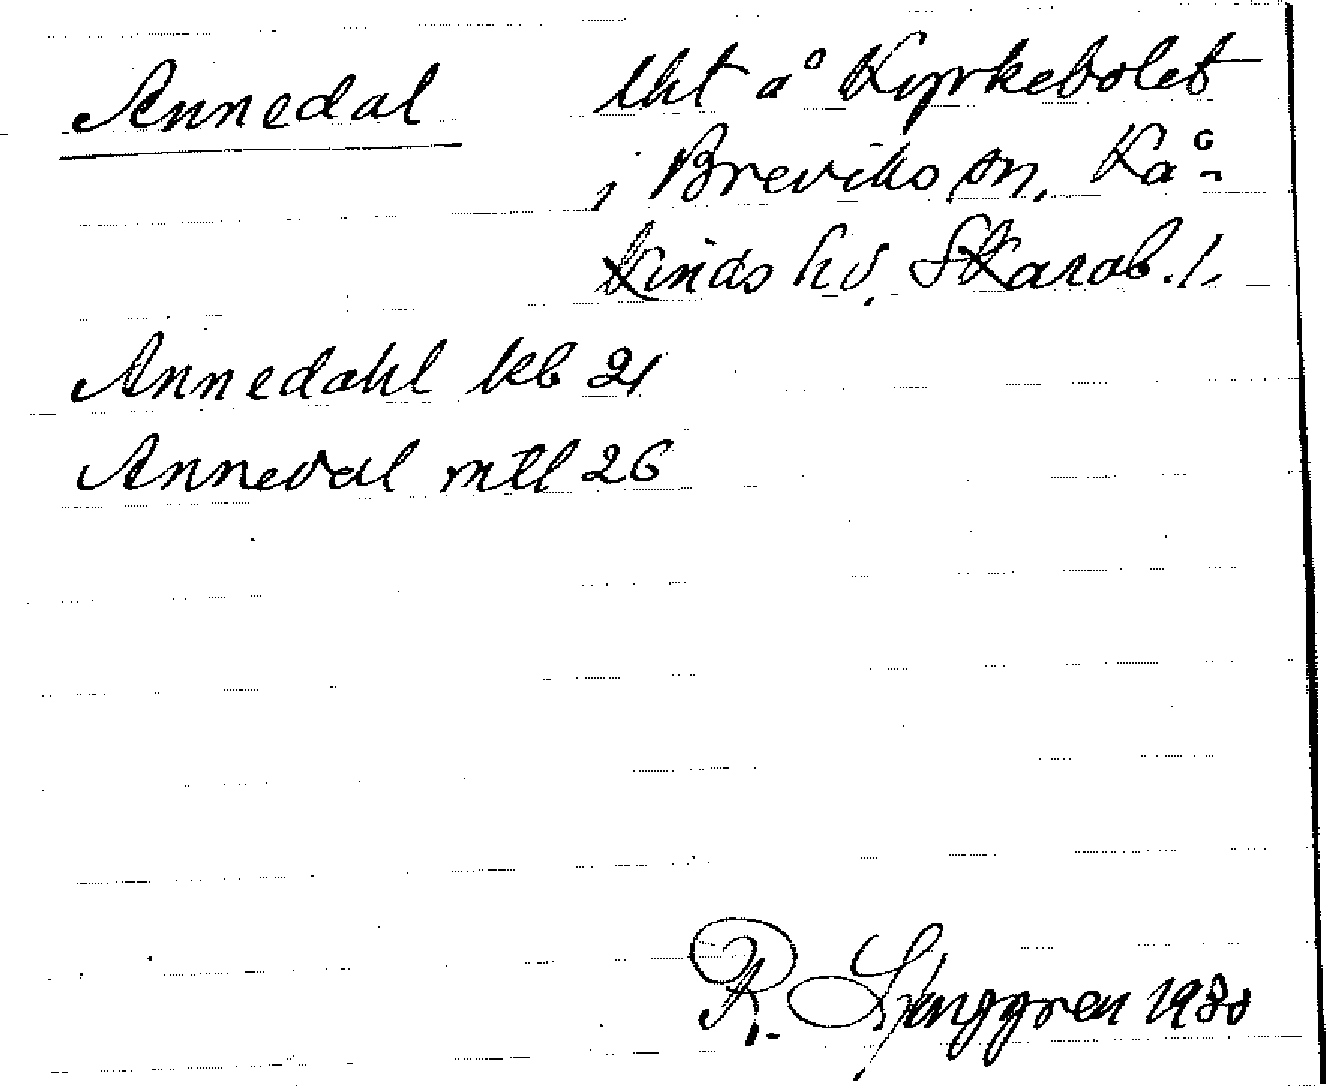 Annedal lht å Kyrkebolet
i Breviks sn, Kå-
kinds hd, Skarab. l.
Annedahl kb 21
Annedal mtl 26
R. Ljunggren 1930